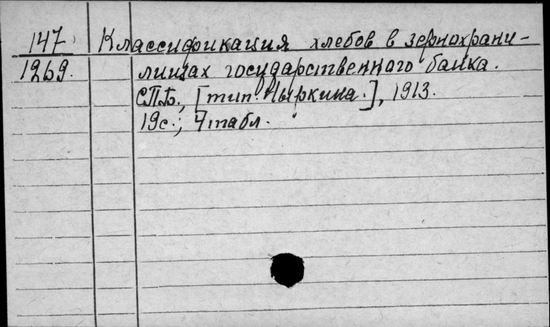 147 Классификация хлебов в зернохрани-
1269. лищах государственного банка.
СПБ., [тип. Ныркина.], 1913.
19с.; 4 табл.